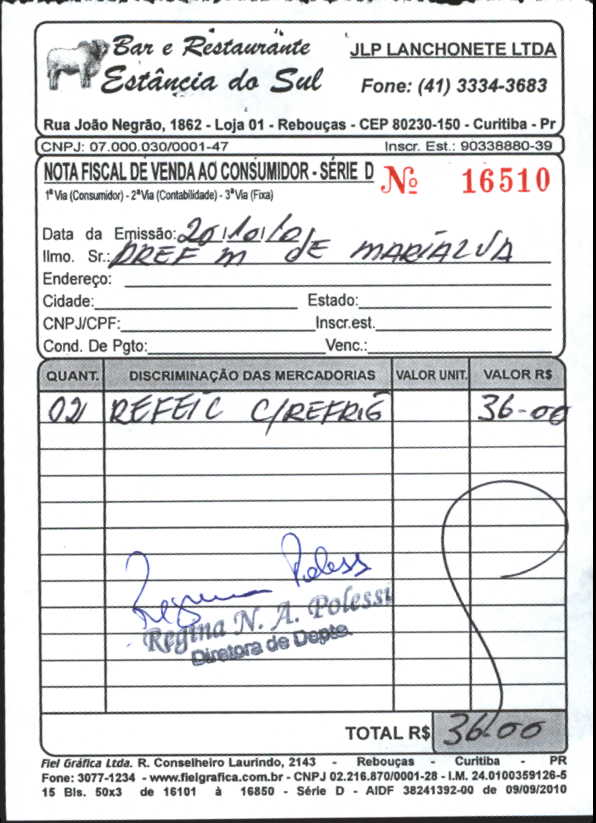 Bar e Restaurante
Estância do Sul
JLP LANCHONETE LTDA
Fone: (41) 3334-3683
Rua João Negrão, 1862 - Loja 01 - Rebouças - CEP 80230-150 - Curitiba - Pr
CNPJ: 07.000.030/0001-47 Inscr. Est.: 90338880-39
NOTA FISCAL DE VENDA AO CONSUMIDOR - SÉRIE D
Nº 16510
1ª Via (Consumidor) - 2ª Via (Contabilidade) - 3ª Via (Fixa)
Data da Emissão: 20/10/10
Ilmo. Sr.: PREF M DE MARIALVA
Endereço:
Cidade: Estado:
CNPJ/CPF: Inscr.est.
Cond. De Pgto: Venc.:
QUANT. DISCRIMINAÇÃO DAS MERCADORIAS VALOR UNIT. VALOR R$
02 REFEIC C/REFRIG 36-00
Regina N. A. Polessi
Diretora de Depto.
TOTAL R$ 36-00
Fiel Gráfica Ltda. R. Conselheiro Laurindo, 2143 - Rebouças - Curitiba - PR
Fone: 3077-1234 - www.fielgrafica.com.br - CNPJ 02.216.870/0001-28 - I.M. 24.0100359126-5
15 Bls. 50x3 de 16101 à 16850 - Série D - AIDF 38241392-00 de 09/09/2010